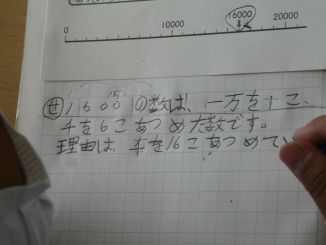 10000 16000 20000
0
せ 16000の数は、一万を1こ、
千を6こあつめた数です。
理由は、千を16こあつめて、